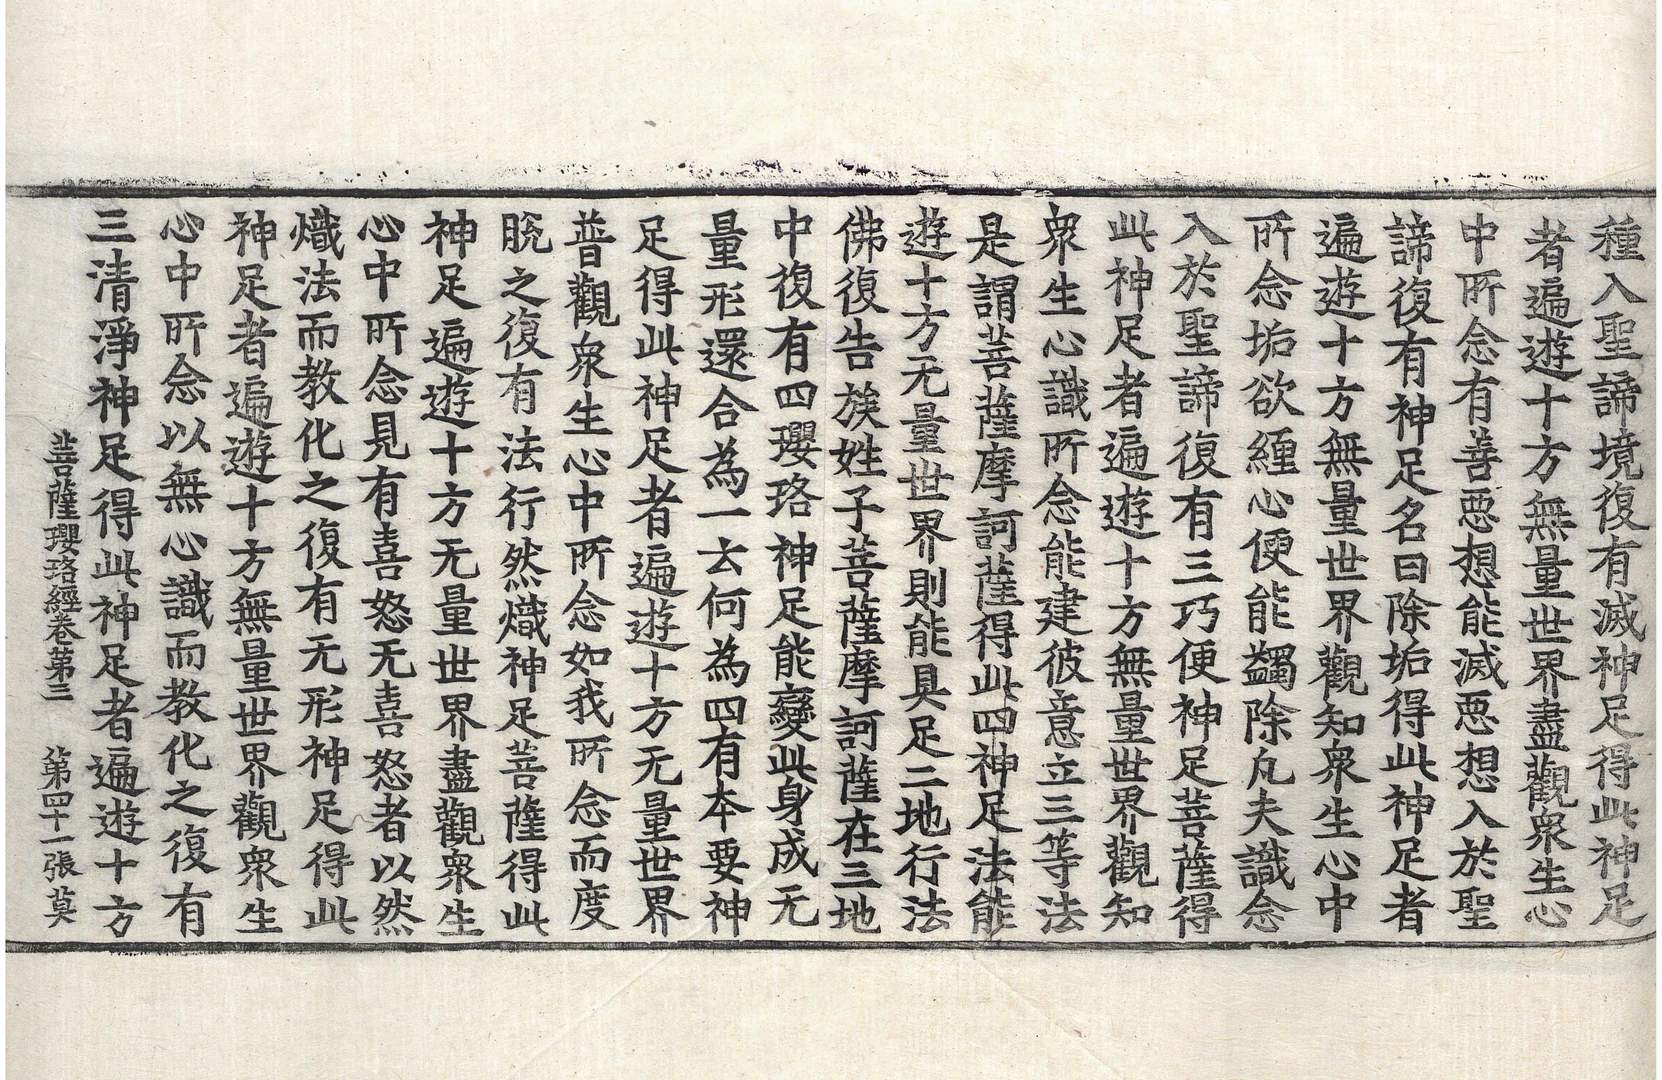 種入聖諦境復有滅神足得此神足
者遍遊十方無量世界盡觀衆生心
中所念有善惡想能滅惡想入於聖
諦復有神足名曰除垢得此神足者
遍遊十方無量世界觀知衆生心中
所念垢欲纏心便能蠲除凡夫識念
入於聖諦復有三巧便神足菩薩得
此神足者遍遊十方無量世界觀知
衆生心識所念能建彼意立三等法
是謂菩薩摩訶薩得此四神足法能
遊十方无量世界則能具足二地行法
佛復告族姓子菩薩摩訶薩在三地
中復有四瓔珞神足能變此身成无
量形還合為一云何為四有本要神
足得此神足者遍遊十方无量世界
普觀衆生心中所念如我所念而度
脫之復有法行然熾神足菩薩得此
神足遍遊十方无量世界盡觀衆生
心中所念見有喜怒无喜怒者以然
熾法而教化之復有无形神足得此
神足者遍遊十方無量世界觀衆生
心中所念以無心識而教化之復有
三清淨神足得此神足者遍遊十方
菩薩瓔珞經卷第三 第四十一張莫